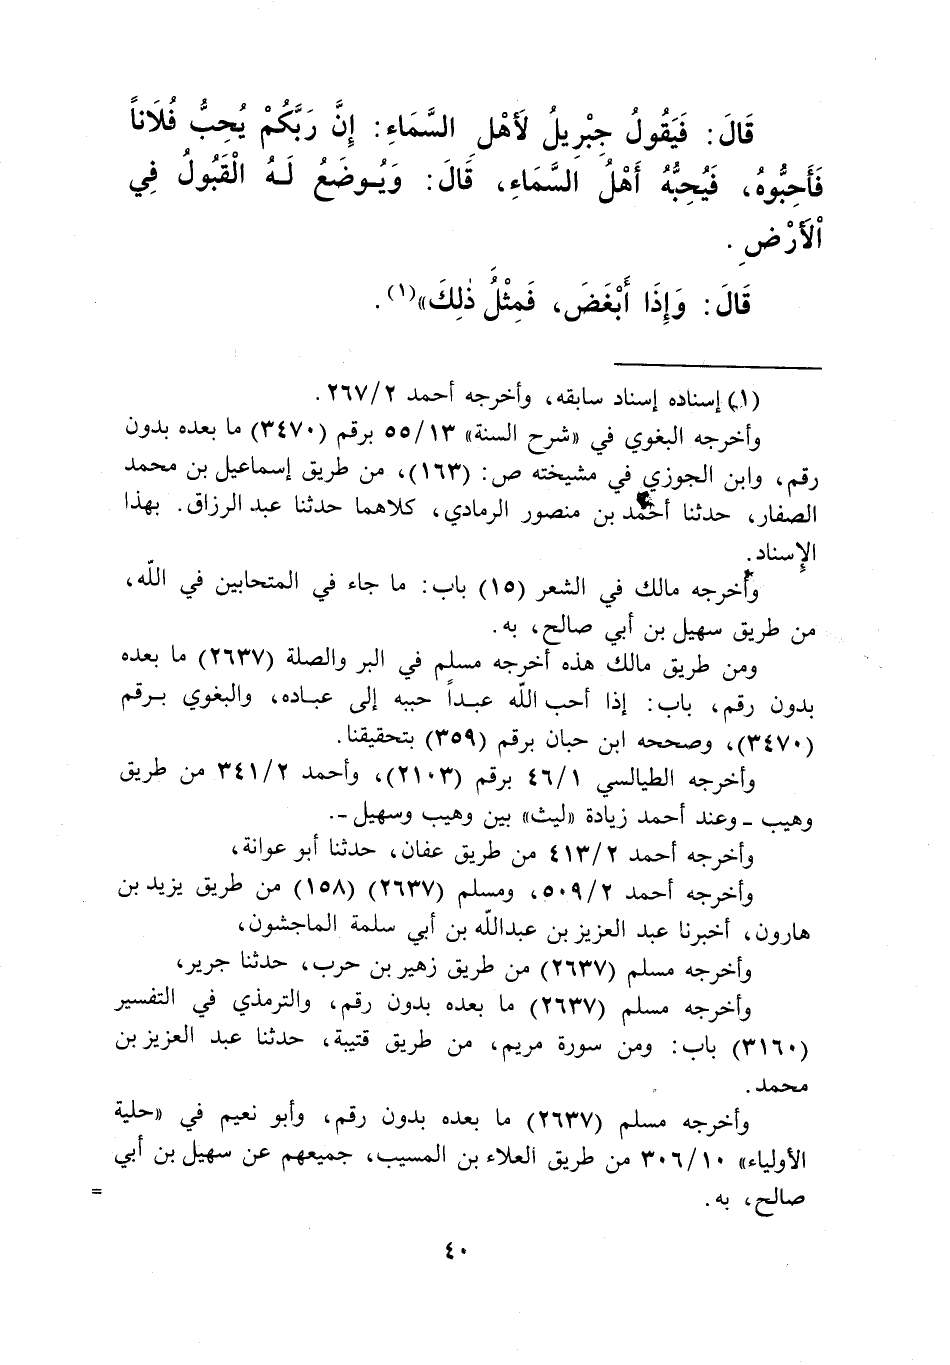 قَالَ: فَيَقُولُ جِبْرِيلُ لأَهْلِ السَّمَاءِ: إِنَّ رَبَّكُمْ يُحِبُّ فُلَاناً
فَأَحِبُّوهُ، فَيُحِبُّهُ أَهْلُ السَّمَاءِ، قَالَ: وَيُوضَعُ لَهُ الْقَبُولُ فِي
اْلأَرْضِ.
قَالَ: وَإِذَا أَبْغَضَ، فَمِثْلُ ذٰلِكَ»(١).
(١) إسناده إسناد سابقه، وأخرجه أحمد ٢/٢٦٧.
وأخرجه البغوي في «شرح السنة» ١٣/٥٥ برقم (٣٤٧٠) ما بعده بدون
رقم، وابن الجوزي في مشيخته ص: (١٦٣)، من طريق إسماعيل بن محمد
الصفار، حدثنا أحمد بن منصور الرمادي، كلاهما حدثنا عبد الرزاق. بهذا
الإسناد.
وأخرجه مالك في الشعر (١٥) باب: ما جاء في المتحابين في اللّه،
من طريق سهيل بن أبي صالح، به.
ومن طريق مالك هذه أخرجه مسلم في البر والصلة (٢٦٣٧) ما بعده
بدون رقم، باب: إذا أحب اللّه عبداً حببه إلى عباده، والبغوي برقم
(٣٤٧٠)، وصححه ابن حبان برقم (٣٥٩) بتحقيقنا.
وأخرجه الطيالسي ١/٤٦ برقم (٢١٠٣)، وأحمد ٢/٣٤١ من طريق
وهيب ـ وعند أحمد زيادة «ليث» بين وهيب وسهيل ـ.
وأخرجه أحمد ٢/٤١٣ من طريق عفان، حدثنا أبو عوانة،
وأخرجه أحمد ٢/٥٠٩، ومسلم (٢٦٣٧) (١٥٨) من طريق يزيد بن
هارون، أخبرنا عبد العزيز بن عبداللّه بن أبي سلمة الماجشون،
وأخرجه مسلم (٢٦٣٧) من طريق زهير بن حرب، حدثنا جرير،
وأخرجه مسلم (٢٦٣٧) ما بعده بدون رقم، والترمذي في التفسير
(٣١٦٠) باب: ومن سورة مريم، من طريق قتيبة، حدثنا عبد العزيز بن
محمد.
وأخرجه مسلم (٢٦٣٧) ما بعده بدون رقم، وأبو نعيم في «حلية
الأولياء» ١٠/٣٠٦ من طريق العلاء بن المسيب، جميعهم عن سهيل بن أبي
صالح، به. =
٤٠